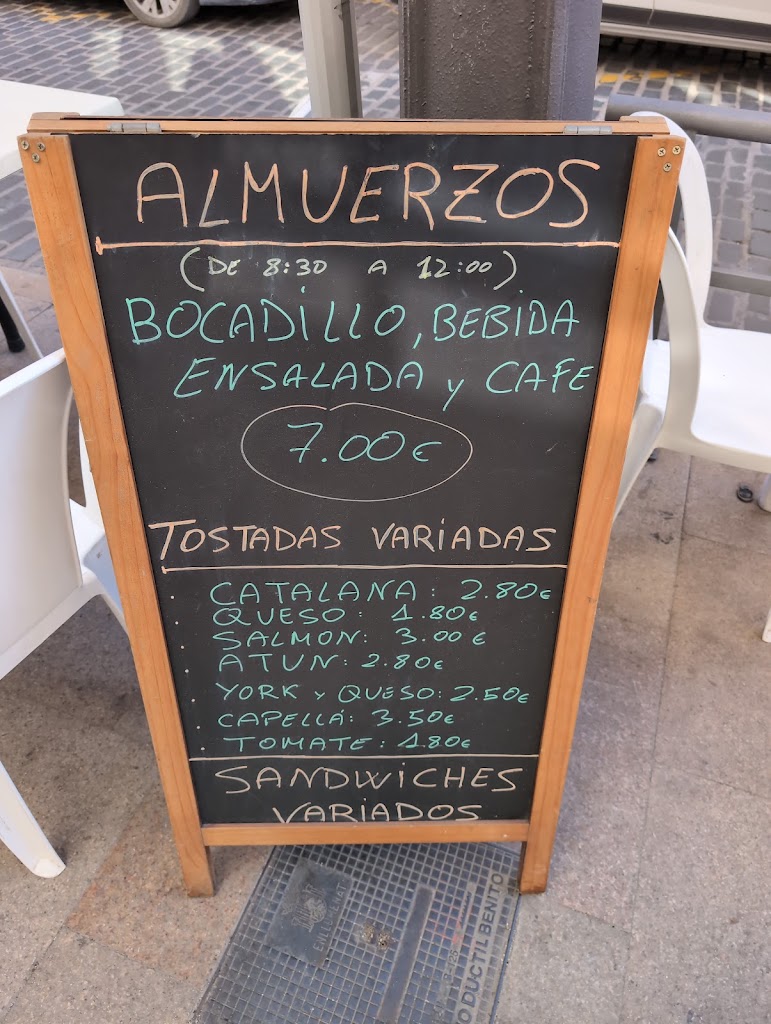 ALMUERZOS
(DE 8:30 A 12:00)
BOCADILLO, BEBIDA
ENSALADA y CAFE
7.00€
TOSTADAS VARIADAS
. CATALANA: 2.80€
. QUESO: 1.80€
. SALMON: 3.00€
. ATUN: 2.80€
. YORK y QUESO: 2.50€
. CAPELLÁ: 3.50€
. TOMATE: 1.80€
SANDWICHES
VARIADOS
DUCTIL BENITO